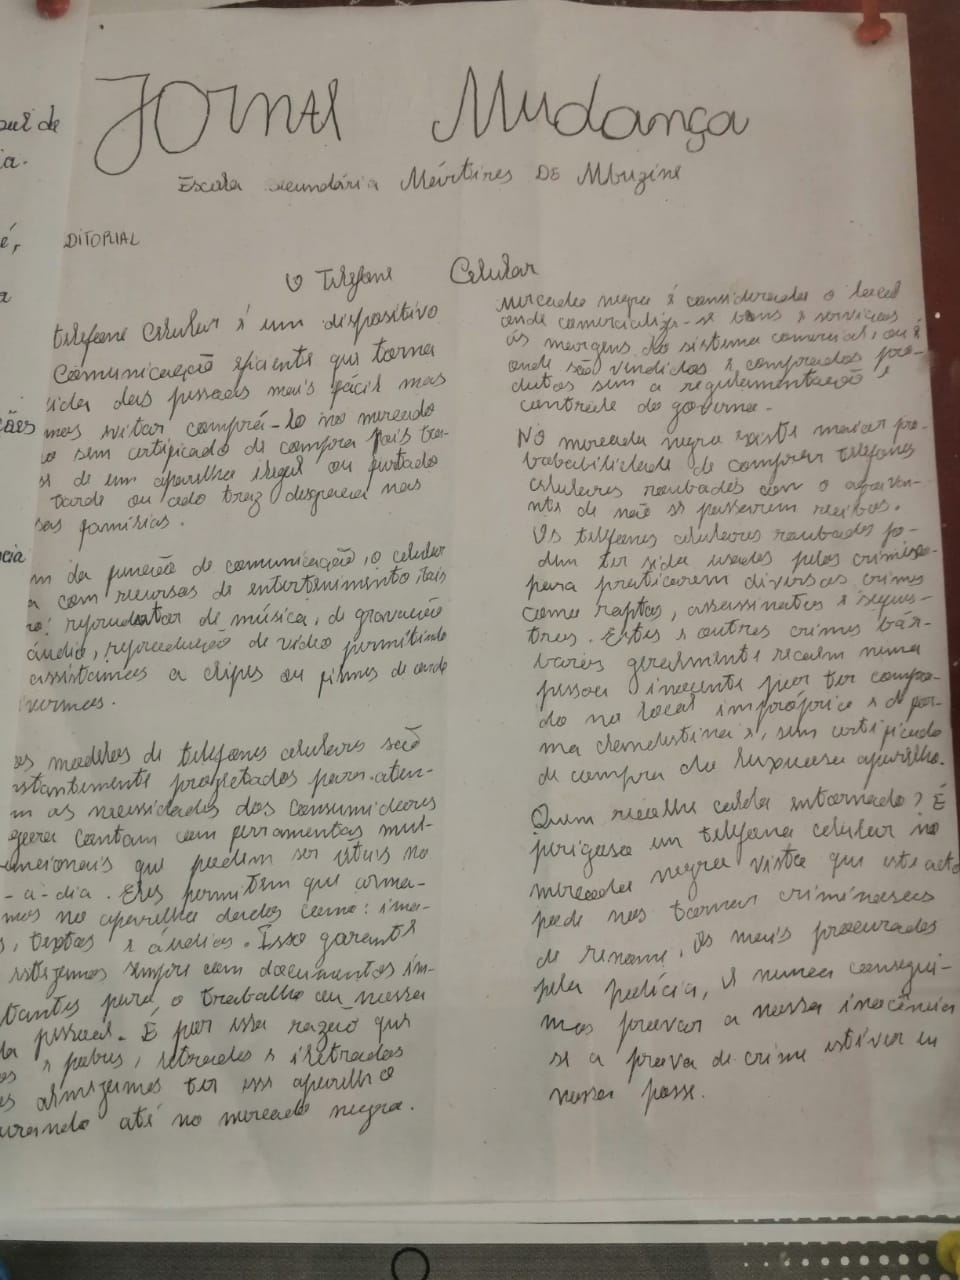 sul de
ia.
é,
a
ções
cia
JORNAL Mudança
Escola secundária Mártires DE Mbuzine
EDITORIAL
O Telefone Celular
telefone celular é um dispositivo
comunicação eficiente que torna
vida das pessoas mais fácil mas
mos evitar comprá-lo no mercado
o sem certificado de compra pois tra-
se de um aparelho ilegal ou furtado
tarde ou cedo traz desgraça nas
sas famísias.
m da função de comunicação, o celular
a com recursos de entretenimento tais
mo: reprodutor de música, de gravação
áudio, reprodução de vídeo permitindo
assistamos a clipes ou filmes de curdo
normas.
os modelos de telefones celulares são
nstantemente projetados para aten-
m as necessidades dos consumidores
gora contam com ferramentas mul-
funcionais que podem ser úteis no
-a-dia. Eles permitem que arma-
mos no aparelho dados como: ima-
s, textos e áudios. Isso garante
estejamos sempre com documentos im-
tantes para o trabalho ou nossa
da pessoal. É por essa razão que
os e pobres, letrados e iletrados
es almejamos ter esse aparelho
urando até no mercado negro.
Mercado negro é considerado o local
onde comercializa-se bens e serviços
ás margens do sistema comercial, ou é
onde são vindidos e comprados pro-
dutos sem a regulamentação e
controle do governo.
No mercado negro existe maior pro-
bababilidade de comprar telefones
celulares roubados com o agravan-
te de não se passarem recibos.
Os telefones celulares roubados po-
dem ter sido usados pelos crimiso-
para praticarem diversos crimes
como raptos, assassinatos e seques-
tros. Estes e outros crimes bár-
baros geralmente recaem numa
pessoa inocente por ter compra-
do no local impróprico e de for-
ma clandestina e, sem certificado
de compra do luxuoso aparelho.
Quem recolhe caldo entornado? É
perigoso um telefone celular no
mercado negro visto que este acto
pode nos tornar crimínosos
de renome, os mais procurados
pela polícia, e nunca consegui-
mos provar a nossa inocência
se a prova de crime estiver em
nossa posse.